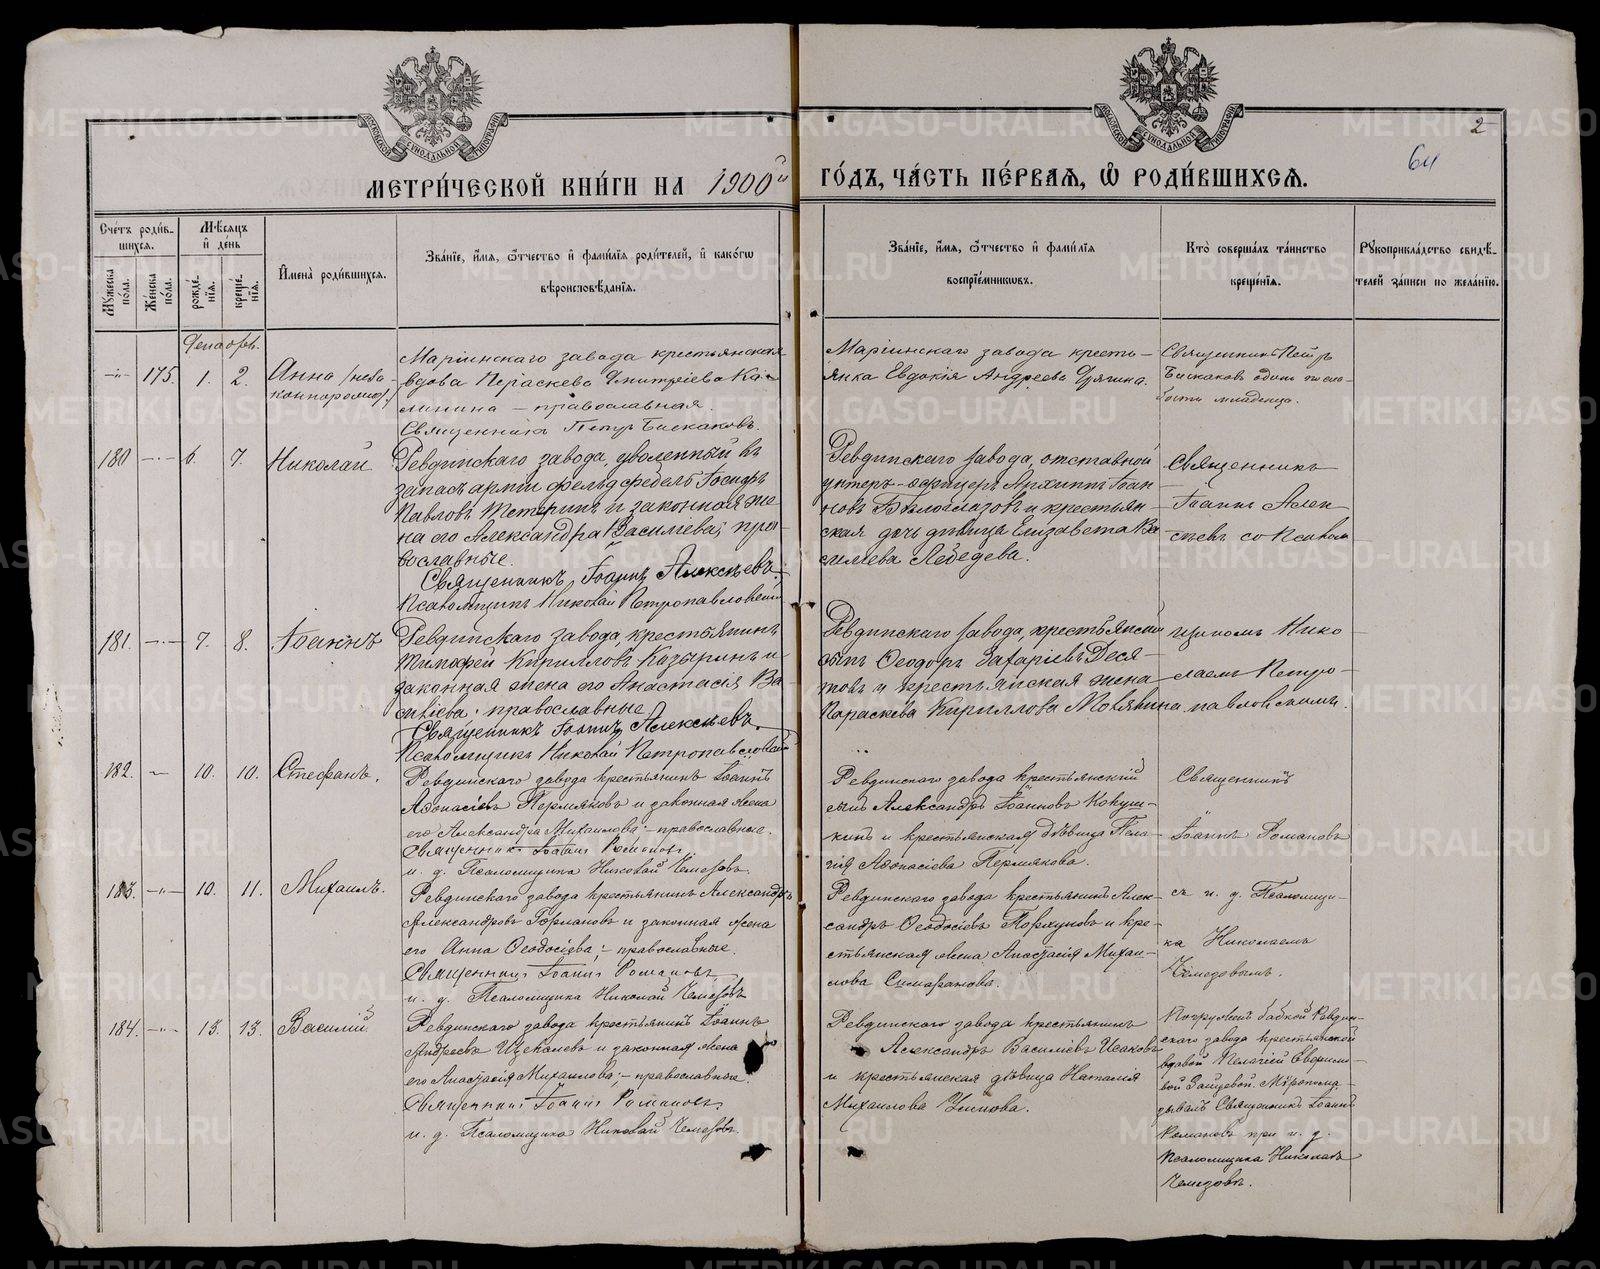 МЕТРИ́ЧЕСКОЙ КНИ́ГИ НА 1900й ГО́ДЪ, ЧА́СТЬ ПЕ́РВАЯ, Ѡ҆ РОДИ́ВШИХСЯ.
2
64
Счетъ роди́вшихся.
Мужеска по́ла.
Же́нска по́ла.
Мѣсяцъ и день
рожде́нїя.
креще́нїя.
Имена̀ роди́вшихся.
Зва́нїе, и́мя, ѻ҆́тчество и фами́лїя роди́телей, и како́гѡ
вѣроисповѣ́данїя.
Зва́нїе, и́мя, ѻ҆́тчество и фами́лїя
воспрїе́мникѡвъ.
Кто̀ соверша́лъ та́инство
креще́нїя.
Рукоприкла́дство свидѣ́-
телей за́писи по жела́нїю.
175. 1. 2.
Анна
Маріинскаго завода крестьянская
вдова Параскева Дмитріева Ка-
линина – православная.
Священникъ Петръ Бискаковъ.
Маріинскаго завода кресть-
янка Евдокія Андреева
Священникъ Петръ
Бискаковъ
младенца.
180 6. 7. Николай
Ревдинскаго завода, уволенный въ
запасъ арміи фельдфебель Іосифъ
Павловъ Тетеринъ и законная же-
на его Александра Васильева; пра-
вославные.
Священникъ Іоаннъ Алексѣевъ.
Псаломщикъ Николай Петропавловскій
Ревдинскаго завода, отставной
унтеръ-офицеръ Архиппъ Іоан-
новъ Бѣлоглазовъ и крестьян-
ская дочь дѣвица Елизавета Ва-
сильева Лебедева.
Священникъ
Іоаннъ Алек-
сѣевъ со Псалом-
181. 7. 8. Іоаннъ
Ревдинскаго завода, крестьянинъ
Тимофей Кирилловъ Козыринъ и
законная жена его Анастасія Ва-
сильева; православные.
Священникъ Іоаннъ Алексѣевъ.
Псаломщикъ Николай Петропавловскій
Ревдинскаго завода, крестьянскій
сынъ Ѳеодоръ Захаріевъ Деся-
товъ и крестьянская жена
Параскева Кириллова Мовянина.
щикомъ Нико-
лаемъ Петро-
павловскимъ.
182. 10. 10. Стефанъ.
Ревдинскаго завода крестьянинъ Іоаннъ
Аѳонасіевъ Пермяковъ и законная жена
его Александра Михаилова; – православные.
Священникъ Іоаннъ Романовъ.
и. д. Псаломщика Николай Чемезовъ.
Ревдинскаго завода крестьянскій
сынъ Александръ Іоанновъ Кокуш-
кинъ и крестьянская дѣвица Пела-
гія Аѳонасіева Пермякова.
Священникъ
Іоаннъ Романовъ
183. 10. 11. Михаилъ.
Ревдинскаго завода крестьянинъ Александръ
Александровъ Горлановъ и законная жена
его Анна Ѳеодосіева; – православные.
Священникъ Іоаннъ Романовъ
и. д. Псаломщика Николай Чемезовъ
Ревдинскаго завода крестьянинъ Алек-
сандръ Ѳеодосіевъ Порхуновъ и кре-
стьянская жена Анастасія Михаи-
лова
съ и. д. Псаломщи-
ка Николаемъ
Чемезовымъ.
184. 13. 13. Василій
Ревдинскаго завода крестьянинъ Іоаннъ
Андреевъ Щекалевъ и законная жена
его Анастасія Михаилова; – православные.
Священникъ Іоаннъ Романовъ.
и. д. Псаломщика Николай Чемезовъ.
Ревдинскаго завода крестьянинъ
Александръ Василіевъ Исаковъ
и крестьянская дѣвица Наталія
Михаилова Ушкова.
Погруженъ бабкой Ревдин-
скаго завода крестьянской
вдовой Пелагіей
Зайцевой. Мѵропома-
зывалъ Священникъ Іоаннъ
Романовъ при и. д.
Псаломщика Николаѣ
Чемезовѣ.
METRIKI.GASO-URAL.RU